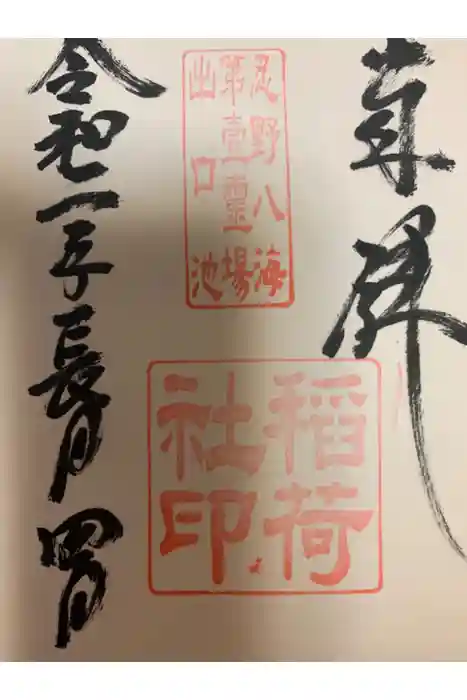 奉拝
忍野八海
第壹靈場
出口池
稲荷
社印
令和一年長月四日